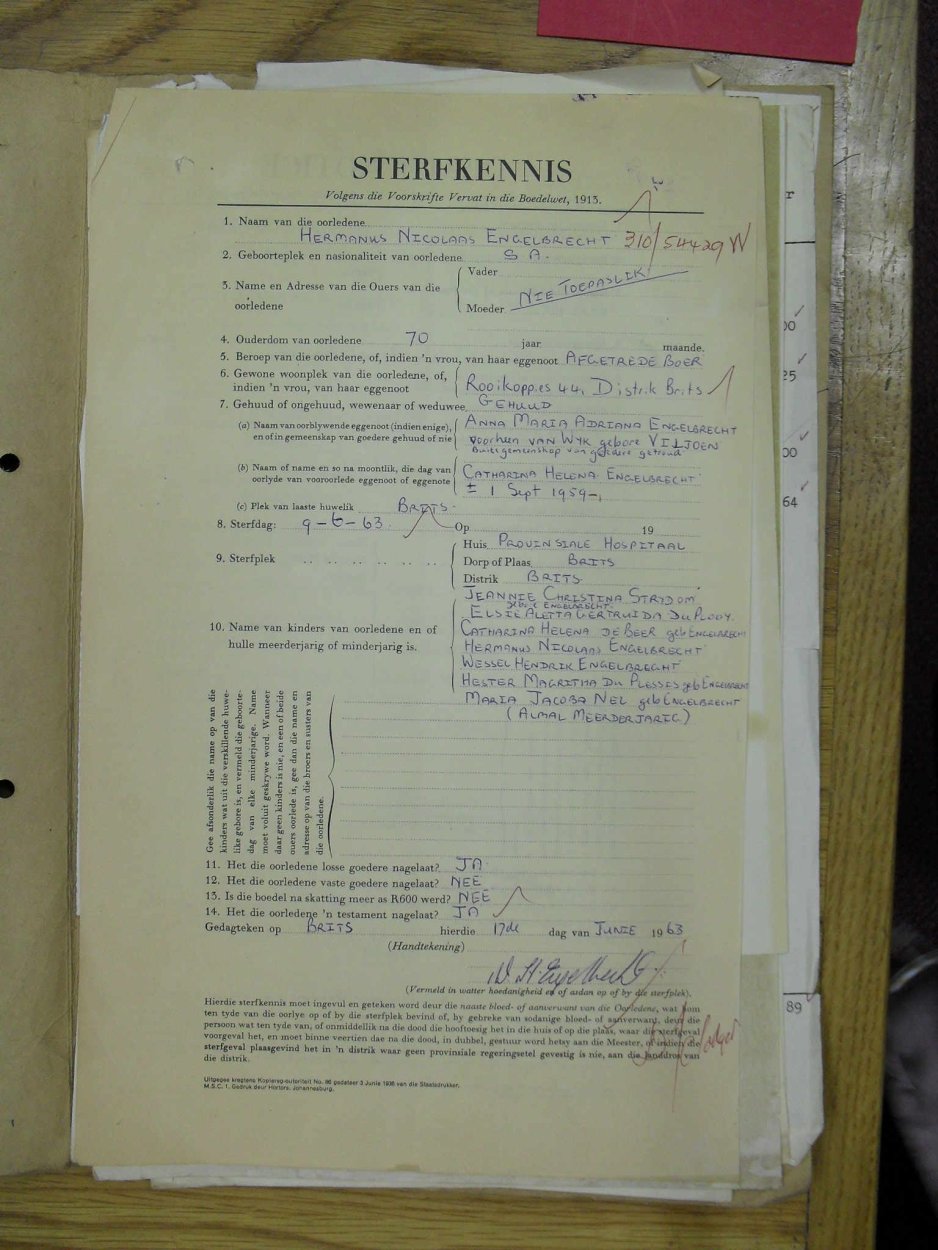 STERFKENNIS
Volgens die Voorskrifte Vervat in die Boedelwet, 1913.
1. Naam van die oorledene
HERMANUS NICOLAAS ENGELBRECHT 310/54429 W
2. Geboorteplek en nasionaliteit van oorledene S A.
3. Name en Adresse van die Ouers van die oorledene
Vader
Moeder
NIE TOEPASLIK
4. Ouderdom van oorledene 70 jaar maande.
5. Beroep van die oorledene, of, indien 'n vrou, van haar eggenoot AFGETREDE BOER
6. Gewone woonplek van die oorledene, of,
indien 'n vrou, van haar eggenoot
Rooikoppies 44, Distrik Brits
7. Gehuud of ongehuud, wewenaar of weduwee GEHUUD
(a) Naam van oorblywende eggenoot (indien enige),
en of in gemeenskap van goedere gehuud of nie
ANNA MARIA ADRIANA ENGELBRECHT
voorheen VAN WYK gebore VILJOEN
Buite gemeenskap van goedere getroud
(b) Naam of name en so na moontlik, die dag van
oorlyde van vooroorlede eggenoot of eggenote
CATHARINA HELENA ENGELBRECHT
± 1 Sept 1959-,
(c) Plek van laaste huwelik BRITS.
8. Sterfdag: 9-6-63 Op 19
9. Sterfplek
Huis PROVINSIALE HOSPITAAL
Dorp of Plaas BRITS
Distrik BRITS
10. Name van kinders van oorledene en of
hulle meerderjarig of minderjarig is.
JEANNIE CHRISTINA STRYDOM
gebore ENGELBRECHT.
ELSIE ALETTA GERTRUIDA DU PLOOY
CATHARINA HELENA DE BEER geb ENGELBRECHT
HERMANUS NICOLAAS ENGELBRECHT
WESSEL HENDRIK ENGELBRECHT
HESTER MAGRITHA DU PLESSIS geb ENGELBRECHT
MARIA JACOBA NEL geb ENGELBRECHT
(ALMAL MEERDERJARIG)
Gee afsonderlik die name op van die
kinders wat uit die verskillende huwe-
like gebore is, en vermeld die geboorte-
dag van elke minderjarige. Name
moet voluit geskrywe word. Wanneer
daar geen kinders is nie, en een of beide
ouers oorlede is, gee dan die name en
adresse op van die broers en susters van
die oorledene.
11. Het die oorledene losse goedere nagelaat? JA
12. Het die oorledene vaste goedere nagelaat? NEE
13. Is die boedel na skatting meer as R600 werd? NEE
14. Het die oorledene 'n testament nagelaat? JA
Gedagteken op BRITS hierdie 17de dag van JUNIE 1963
(Handtekening)
W. H. Engelbrecht
(Vermeld in watter hoedanigheid en of aldan op of by die sterfplek).
Hierdie sterfkennis moet ingevul en geteken word deur die naaste bloed- of aanverwant van die Oorledene, wat hom
ten tyde van die oorlye op of by die sterfplek bevind of, by gebreke van sodanige bloed- of aanverwant, deur die
persoon wat ten tyde van, of onmiddellik na die dood die hooftoesig het in die huis of op die plaas, waar die sterfgeval
voorgeval het, en moet binne veertien dae na die dood, in dubbel, gestuur word hetsy aan die Meester, of indien die
sterfgeval plaasgevind het in 'n distrik waar geen provinsiale regeringsetel gevestig is nie, aan die Landdros van
die distrik.
Uitgegee kragtens Kopiereg-outoriteit No. 86 gedateer 3 Junie 1936 van die Staatsdrukker.
M.S.C. 1. Gedruk deur Hortors, Johannesburg.
r
00
25
00
64
89